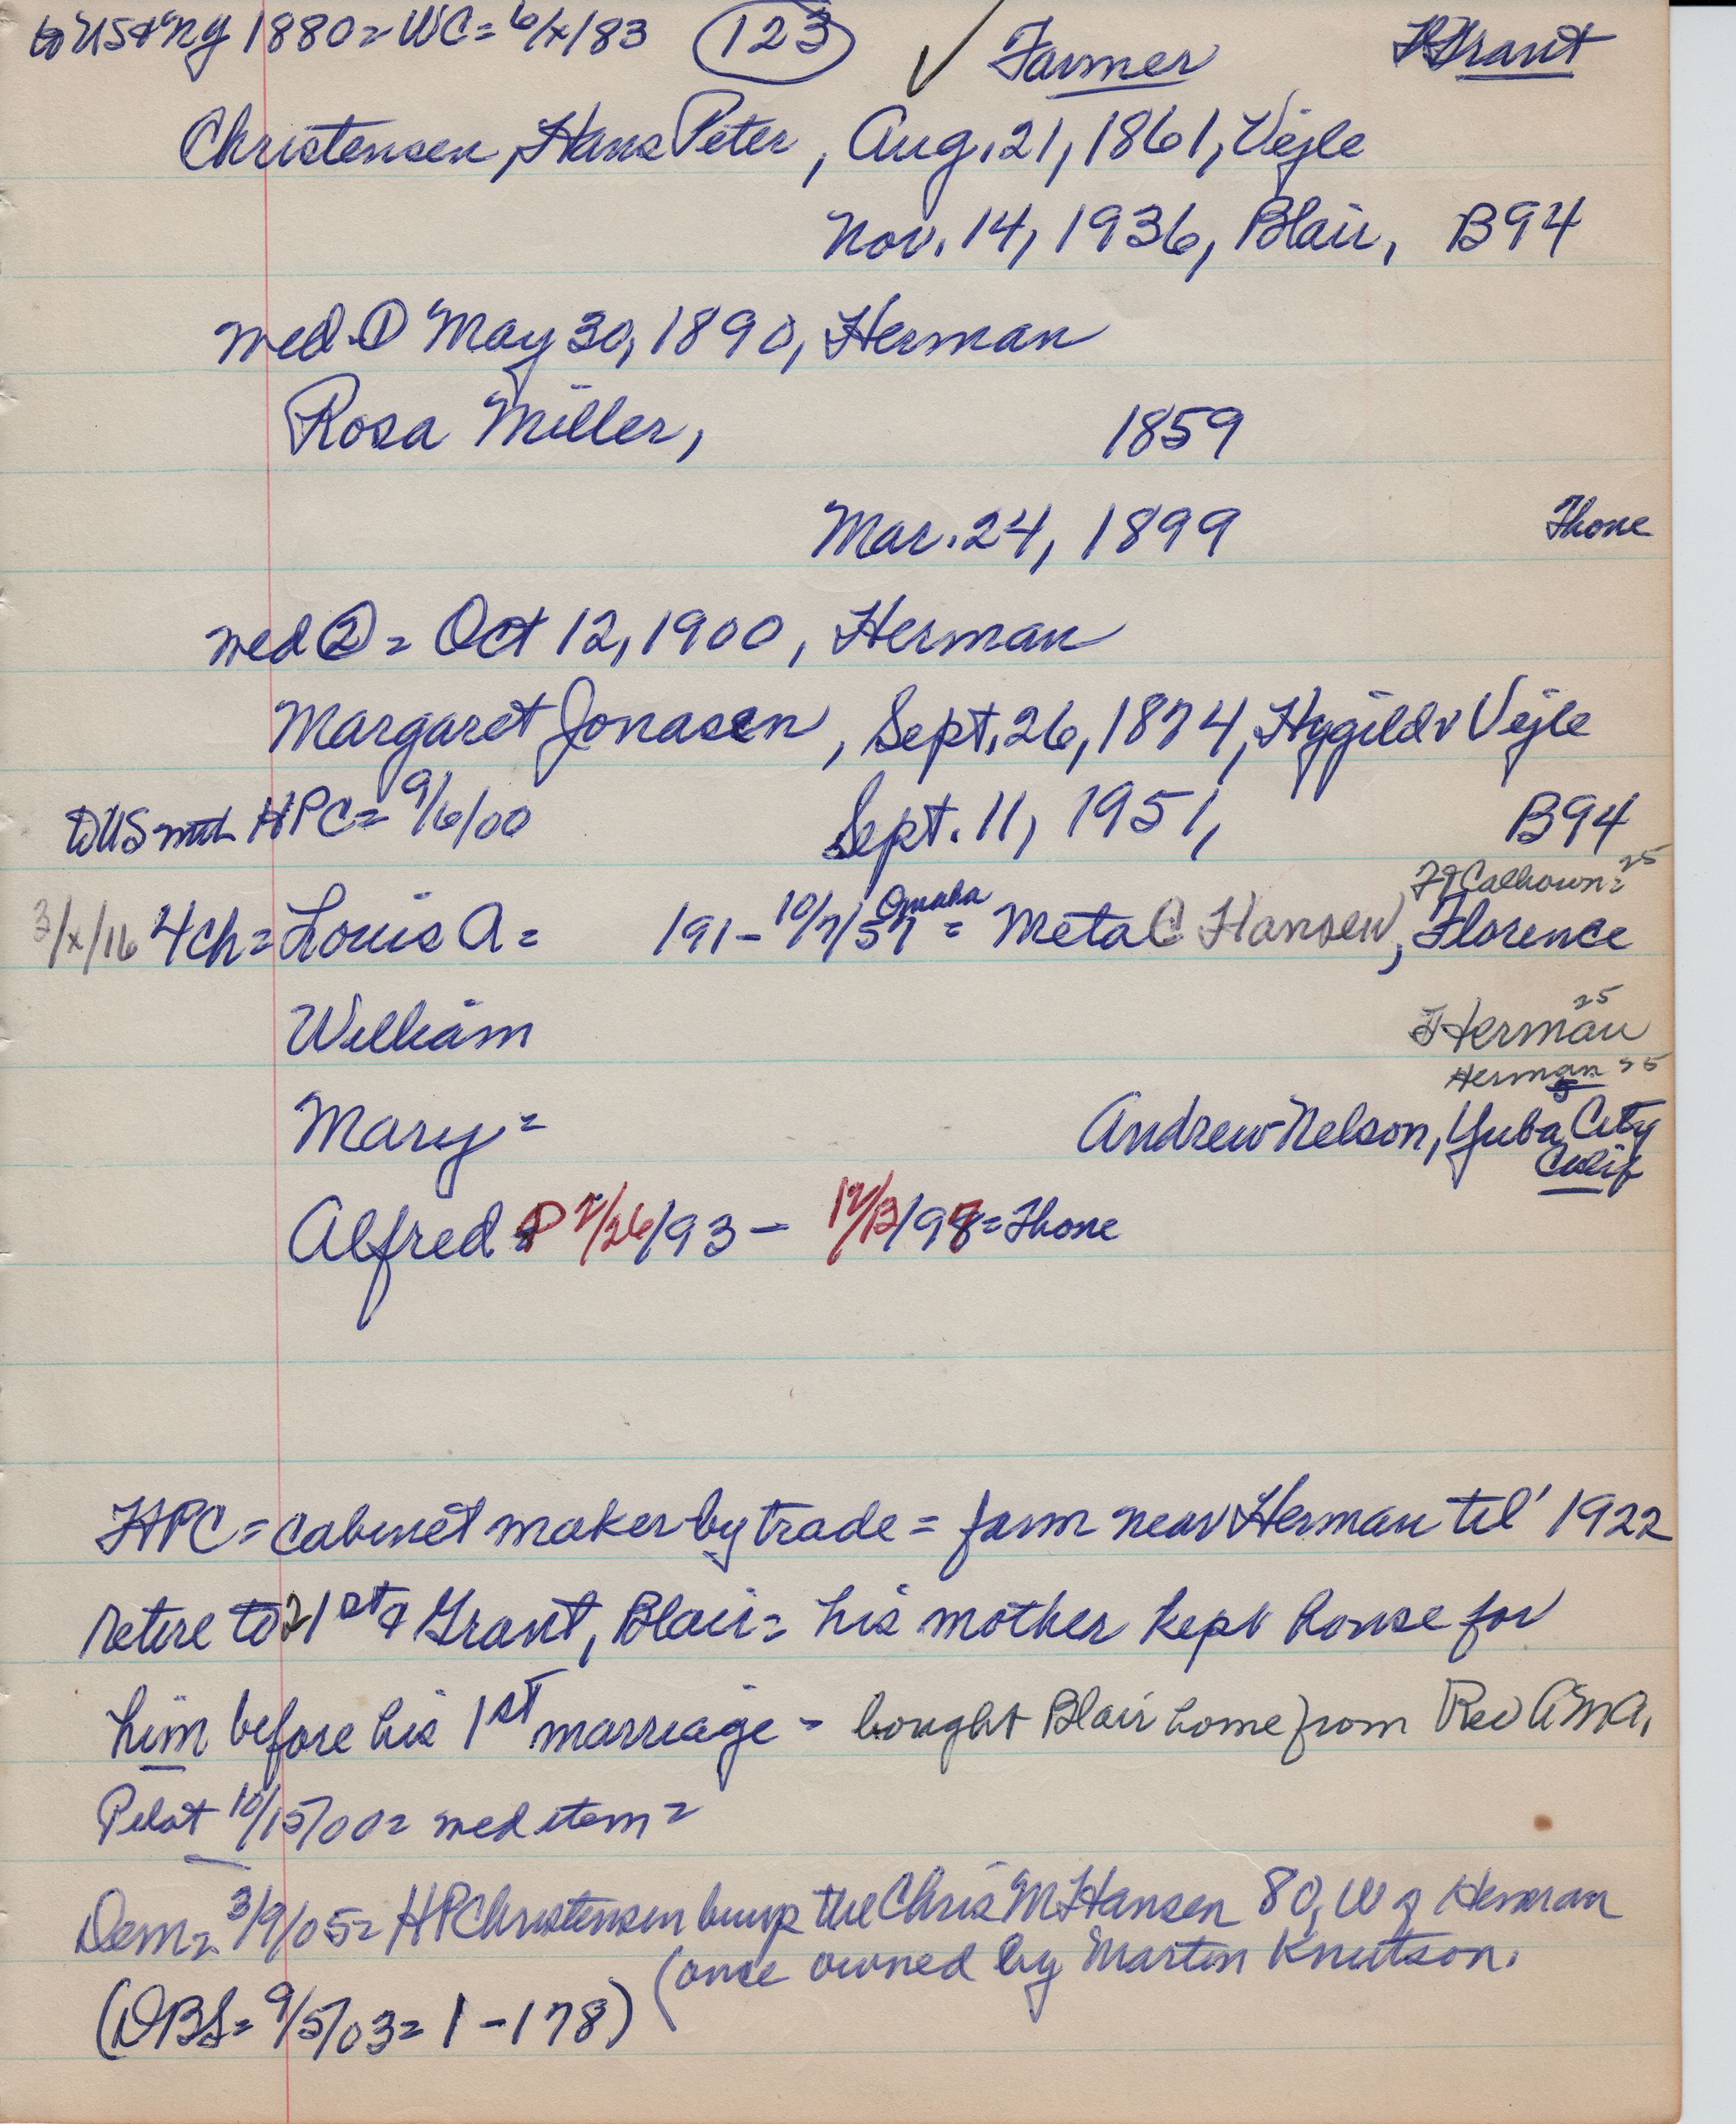 to US & NY 1880 = WC = 6/x/83 (123) ✓ Farmer Grant
Christensen, Hans Peter, Aug. 21, 1861, Vejle
Nov. 14, 1936, Blair, B94
wed ① May 30, 1890, Herman
Rosa Miller, 1859
Mar. 24, 1899 Thone
wed ② = Oct 12, 1900, Herman
Margaret Jonasen, Sept. 26, 1874, Hygild v Vejle
to US with HPC = 9/6/00 Sept. 11, 1951, B94
Ft Calhoun = 25
3/x/16 4ch = Louis A = 191 - 10/7/57 Omaha = Meta C Hansen, Florence
25
William Herman
Herman 25
Mary = Andrew Nelson, Yuba City
Calif
Alfred P 2/26/93 - 12/13/97 = Thone
HPC = cabinet maker by trade = farm near Herman til' 1922
retire to 21st & Grant, Blair = his mother kept house for
him before his 1st marriage - bought Blair home from Rev AMA.
Pilot 10/15/00 = wed item =
Dem = 3/9/05 = HPChristensen buys the Chris M Hansen 80, W of Herman
(once owned by Martin Knutson.
(DBS = 9/5/03 = 1-178)